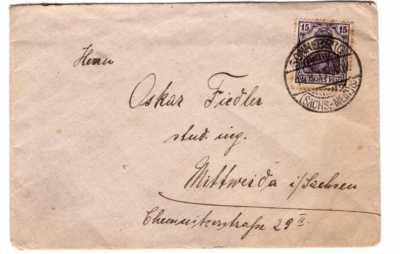 15 15
SONNEBERG
(SACHS.-MEIN.)
Herrn
Oskar Fiedler
stud. ing.
Mittweida i/Sachsen
Chemnitzerstraße 29 II